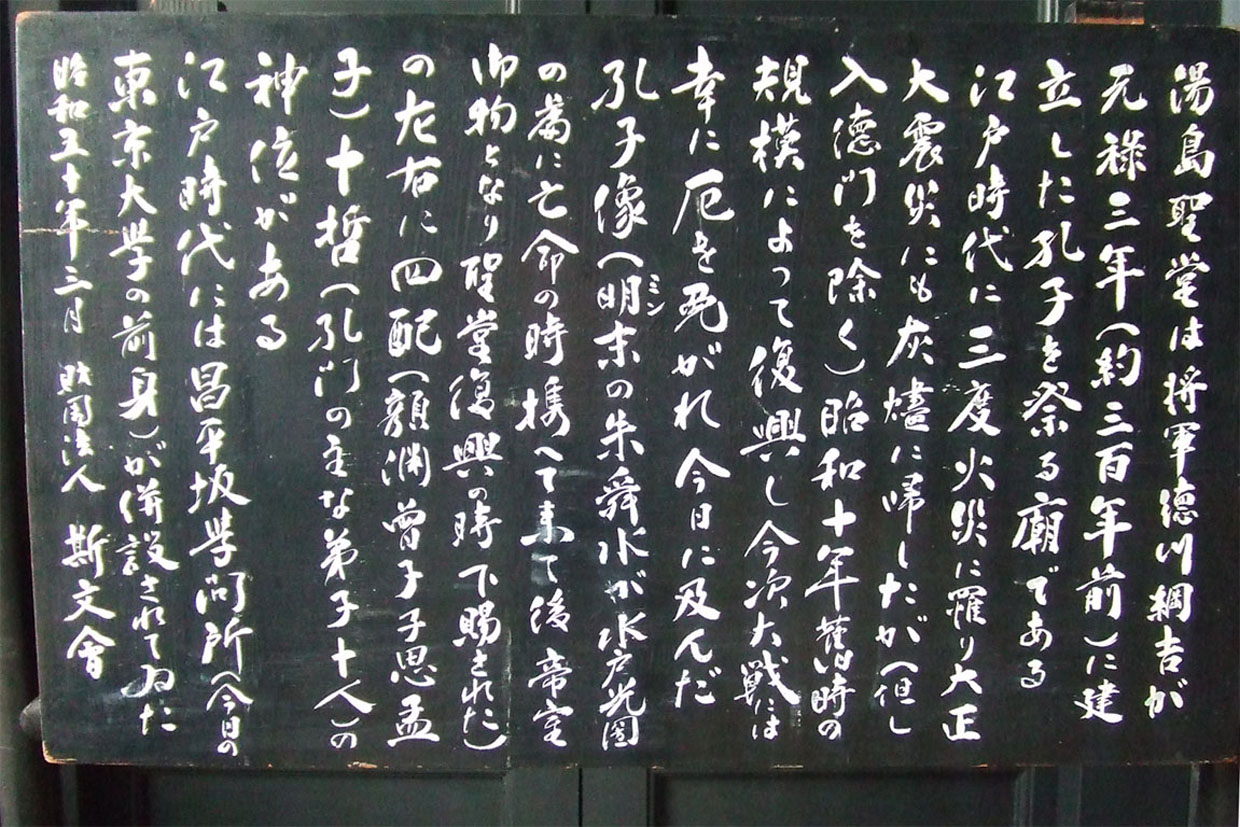 湯島聖堂は将軍德川綱吉が
元禄三年(約三百年前)に建
立した孔子を祭る廟である
江戸時代に三度火災に羅り大正
大震災にも灰燼に帰したが(但し
入德門を除く)昭和十年舊時の
規模によって復興し今次大戦には
幸に厄を免がれ今日に及んだ
孔子像(明末の朱舜水が水戸光圀
ミン
の藩に亡命の時携へて来て後帝室
御物となり聖堂復興の時下賜された)
の左右に四配(顔渊曽子子思孟
子)十哲(孔門の主な弟子十人)の
神位がある
江戸時代には昌平坂学问所(今日の
東京大學の前身)が併設されてゐた
昭和五十年三月 財團法人 斯文會